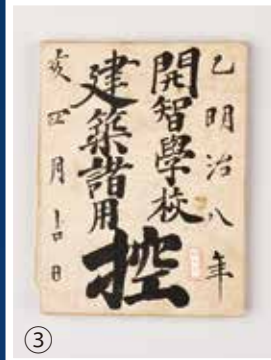 乙明治八年
開智學校
建築諸用
控
亥四月吉日
③